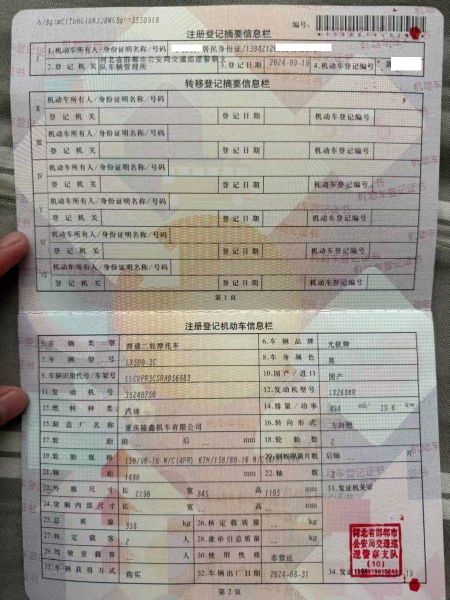 注册登记摘要信息栏
编号:
1.机动车所有人/身份证明名称/号码 居民身份证/130421
2.登记机关 河北省邯郸市公安局交通巡逻警察支队车辆管理所 3.登记日期 2024-09-19 4.机动车登记编号
转移登记摘要信息栏
Ⅱ 机动车所有人/身份证明名称/号码
登记机关 登记日期 机动车登记编号
Ⅲ 机动车所有人/身份证明名称/号码
登记机关 登记日期 机动车登记编号
Ⅳ 机动车所有人/身份证明名称/号码
登记机关 登记日期 机动车登记编号
Ⅴ 机动车所有人/身份证明名称/号码
登记机关 登记日期 机动车登记编号
Ⅵ 机动车所有人/身份证明名称/号码
登记机关 登记日期 机动车登记编号
Ⅶ 机动车所有人/身份证明名称/号码
登记机关 登记日期 机动车登记编号
第1页
注册登记机动车信息栏
5.车辆类型 普通二轮摩托车 6.车辆品牌 无极牌
7.车辆型号 LX500-3C 8.车身颜色 黑
9.车辆识别代号/车架号 10.国产/进口 国产
11.发动机号 35240750 12.发动机型号 LX268MR
13.燃料种类 汽油 14.排量/功率 ml/ kw
15.制造厂名称 重庆隆鑫机车有限公司 16.转向形式 方向把
17.轮距 前 后 mm 18.轮胎数 2
19.轮胎规格 130/90-16 M/C(4PR) 67H/150/80-16 M/C 20.钢板弹簧片数 后轴 片
21.轴距 1480 mm 22.轴数 2
23.外廓尺寸 长 2190 宽 845 高 1105 mm 33.发证机关章
24.货厢内部尺寸 长 宽 高 mm
25.总质量 358 kg 26.核定载质量 kg
27.核定载客 2 人 28.准牵引总质量 kg
29.驾驶室载客 人 30.使用性质 非营运
31.车辆获得方式 购买 32.车辆出厂日期 2024-08-31 34.发证日期
河北省邯郸市
公安局交通巡
逻警察支队
(10)
第2页